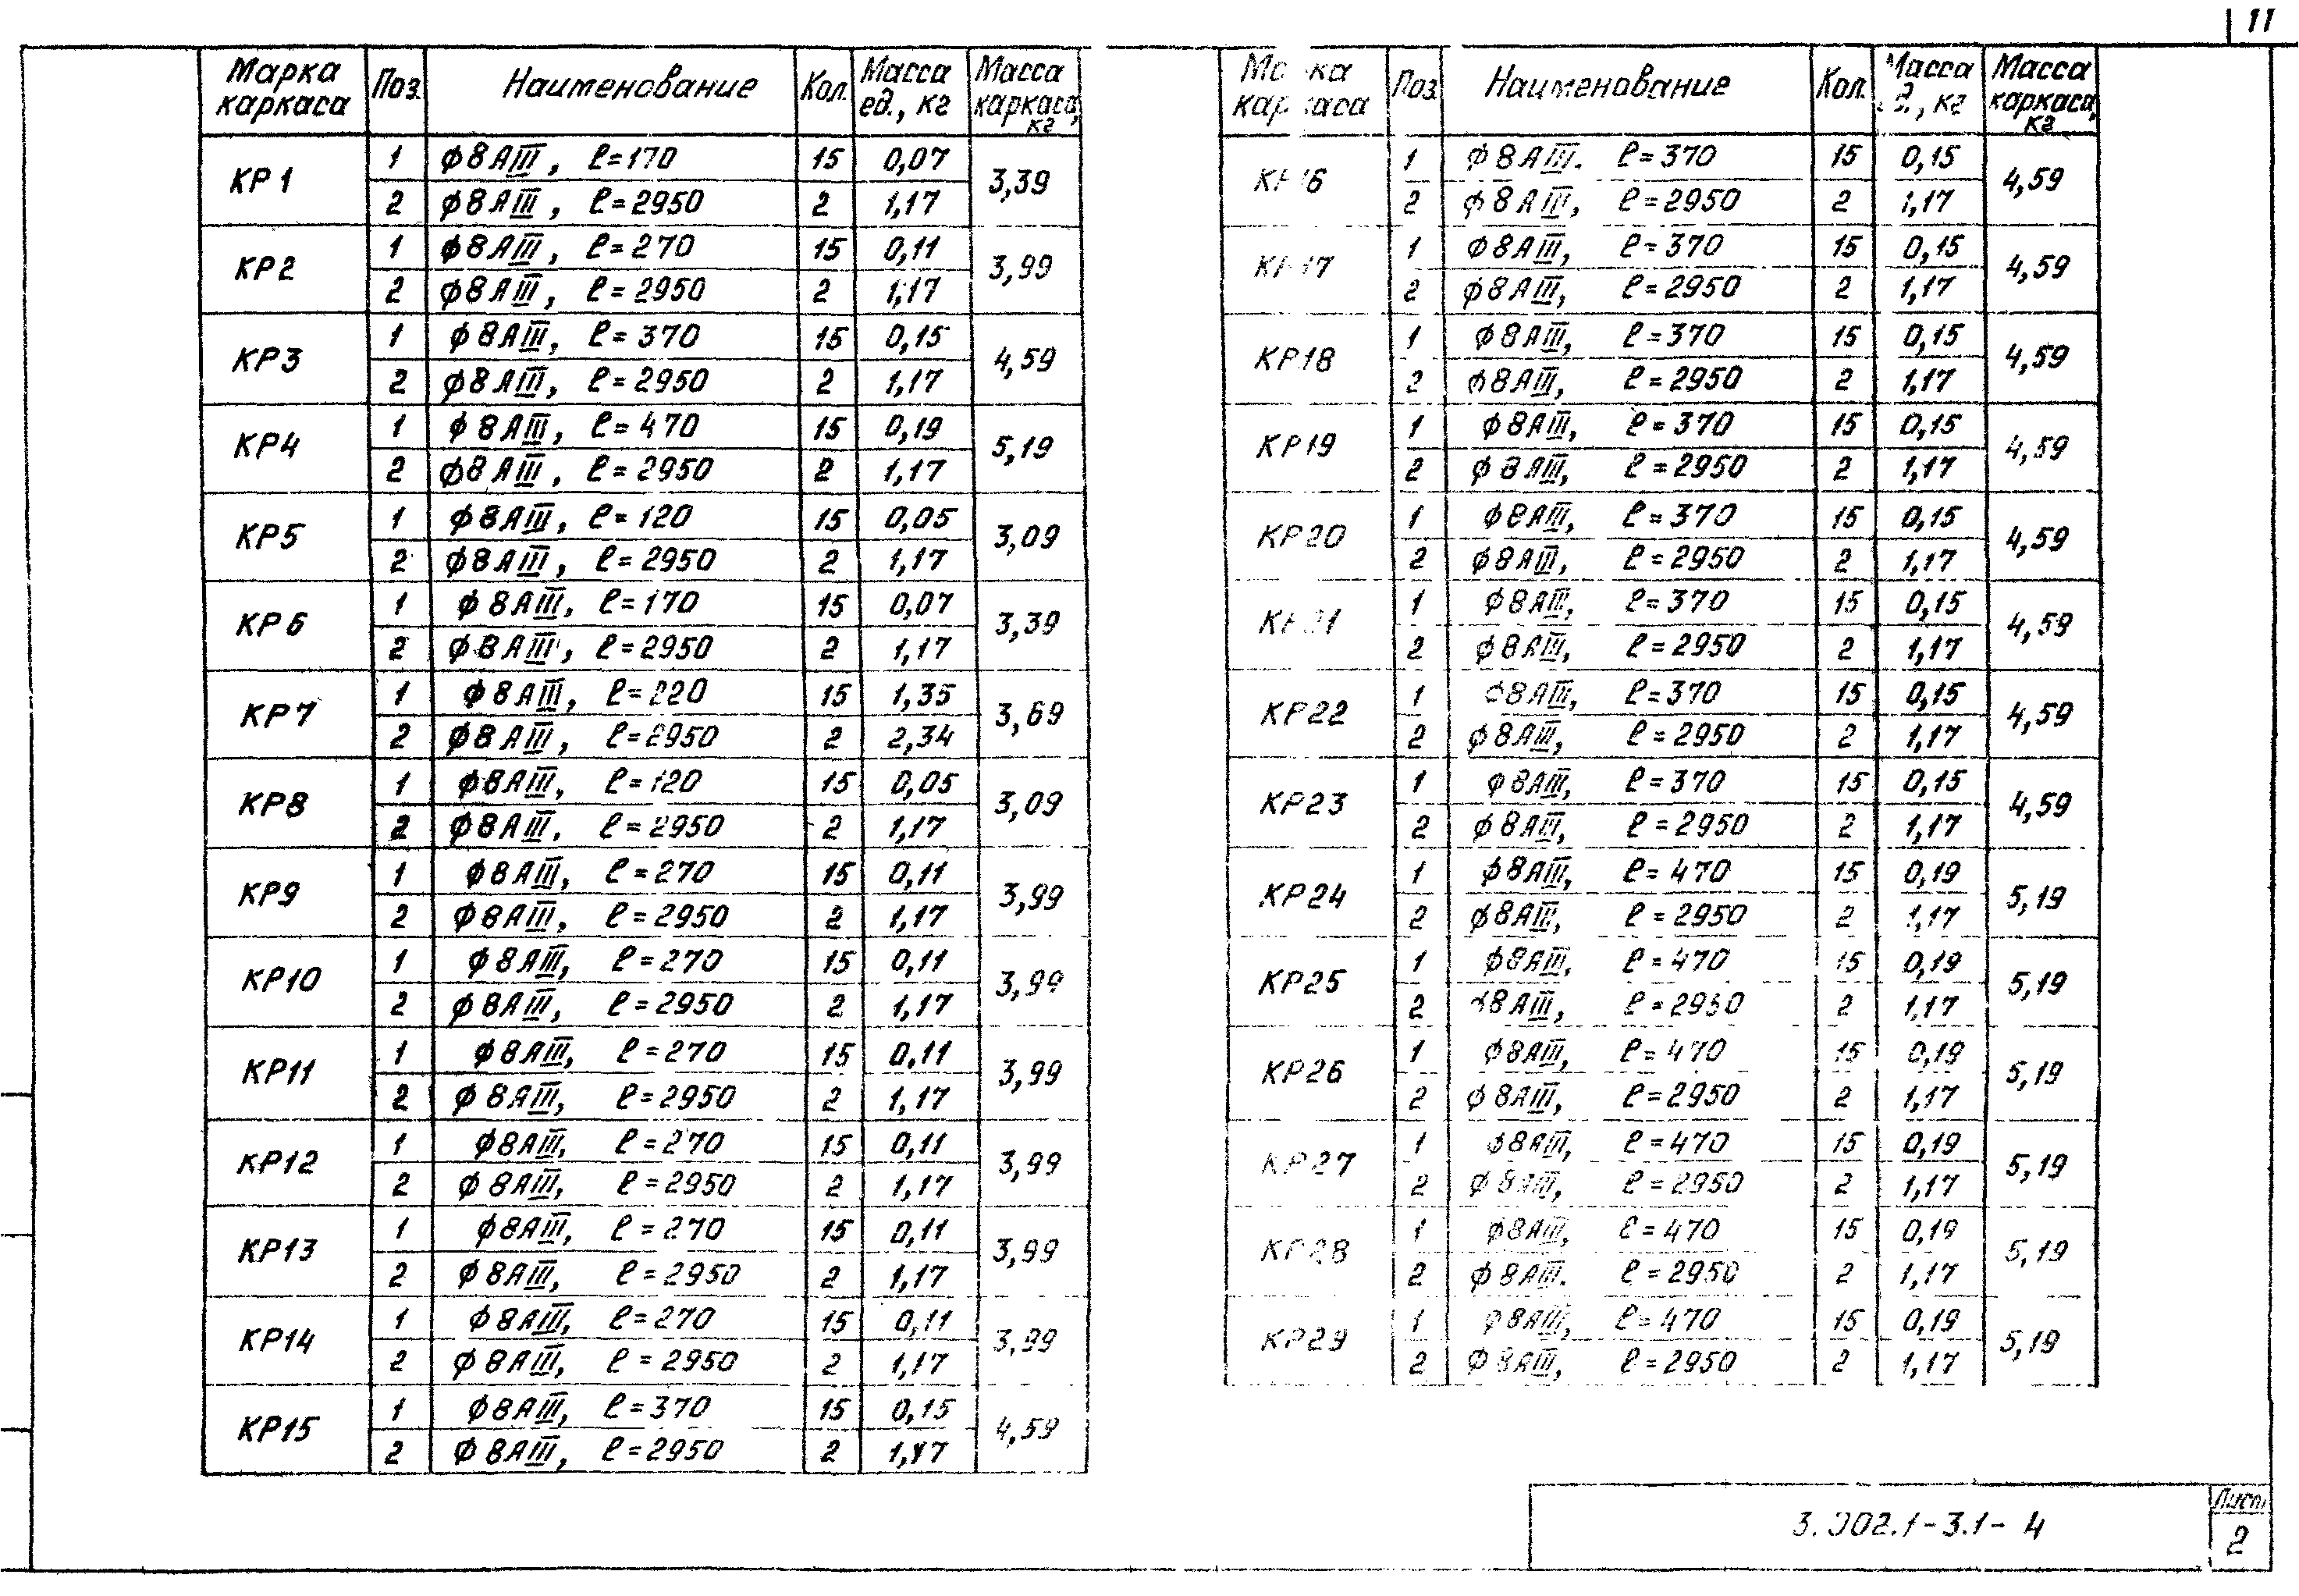 11
Марка каркаса Поз. Наименование Кол. Масса ед., кг Масса каркаса, кг
КР1 1 ϕ8АIII, ℓ=170 15 0,07 3,39
2 ϕ8АIII, ℓ=2950 2 1,17
КР2 1 ϕ8АIII, ℓ=270 15 0,11 3,99
2 ϕ8АIII, ℓ=2950 2 1,17
КР3 1 ϕ8АIII, ℓ=370 15 0,15 4,59
2 ϕ8АIII, ℓ=2950 2 1,17
КР4 1 ϕ8АIII, ℓ=470 15 0,19 5,19
2 ϕ8АIII, ℓ=2950 2 1,17
КР5 1 ϕ8АIII, ℓ=120 15 0,05 3,09
2 ϕ8АIII, ℓ=2950 2 1,17
КР6 1 ϕ8АIII, ℓ=170 15 0,07 3,39
2 ϕ8АIII, ℓ=2950 2 1,17
КР7 1 ϕ8АIII, ℓ=220 15 1,35 3,69
2 ϕ8АIII, ℓ=2950 2 2,34
КР8 1 ϕ8АIII, ℓ=120 15 0,05 3,09
2 ϕ8АIII, ℓ=2950 2 1,17
КР9 1 ϕ8АIII, ℓ=270 15 0,11 3,99
2 ϕ8АIII, ℓ=2950 2 1,17
КР10 1 ϕ8АIII, ℓ=270 15 0,11 3,99
2 ϕ8АIII, ℓ=2950 2 1,17
КР11 1 ϕ8АIII, ℓ=270 15 0,11 3,99
2 ϕ8АIII, ℓ=2950 2 1,17
КР12 1 ϕ8АIII, ℓ=270 15 0,11 3,99
2 ϕ8АIII, ℓ=2950 2 1,17
КР13 1 ϕ8АIII, ℓ=270 15 0,11 3,99
2 ϕ8АIII, ℓ=2950 2 1,17
КР14 1 ϕ8АIII, ℓ=270 15 0,11 3,99
2 ϕ8АIII, ℓ=2950 2 1,17
КР15 1 ϕ8АIII, ℓ=370 15 0,15 4,59
2 ϕ8АIII, ℓ=2950 2 1,17
Марка каркаса Поз. Наименование Кол. Масса ед., кг Масса каркаса, кг
КР16 1 ϕ8АIII. ℓ=370 15 0,15 4,59
2 ϕ8АIII, ℓ=2950 2 1,17
КР17 1 ϕ8АIII, ℓ=370 15 0,15 4,59
2 ϕ8АIII, ℓ=2950 2 1,17
КР18 1 ϕ8АIII, ℓ=370 15 0,15 4,59
2 ϕ8АIII, ℓ=2950 2 1,17
КР19 1 ϕ8АIII, ℓ=370 15 0,15 4,59
2 ϕ8АIII, ℓ=2950 2 1,17
КР20 1 ϕ8АIII, ℓ=370 15 0,15 4,59
2 ϕ8АIII, ℓ=2950 2 1,17
КР21 1 ϕ8АIII, ℓ=370 15 0,15 4,59
2 ϕ8АIII, ℓ=2950 2 1,17
КР22 1 ϕ8АIII, ℓ=370 15 0,15 4,59
2 ϕ8АIII, ℓ=2950 2 1,17
КР23 1 ϕ8АIII, ℓ=370 15 0,15 4,59
2 ϕ8АIII, ℓ=2950 2 1,17
КР24 1 ϕ8АIII, ℓ=470 15 0,19 5,19
2 ϕ8АIII, ℓ=2950 2 1,17
КР25 1 ϕ8АIII, ℓ=470 15 0,19 5,19
2 ϕ8АIII, ℓ=2950 2 1,17
КР26 1 ϕ8АIII, ℓ=470 15 0,19 5,19
2 ϕ8АIII, ℓ=2950 2 1,17
КР27 1 ϕ8АIII, ℓ=470 15 0,19 5,19
2 ϕ8АIII, ℓ=2950 2 1,17
КР28 1 ϕ8АIII, ℓ=470 15 0,19 5,19
2 ϕ8АIII. ℓ=2950 2 1,17
КР29 1 ϕ8АIII, ℓ=470 15 0,19 5,19
2 ϕ8АIII, ℓ=2950 2 1,17
3.002.1-3.1-4
Лист
2